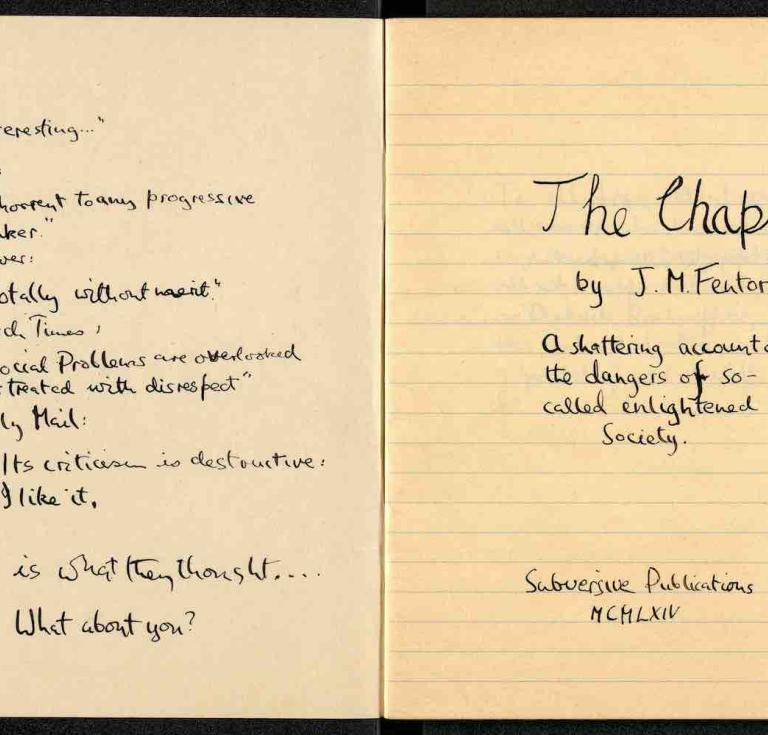 eresting..."
horrent to any progressive
ker."
ver:
otally without merit."
ch Times;
ocial Problems are overlooked
treated with disrespect"
ly Mail:
Its criticism is destructive:
I like it.
is what they thought....
What about you?
The Chap
by J.M.Fenton
A shattering account o
the dangers of so-
called enlightened
Society.
Subversive Publications
MCMLXIV